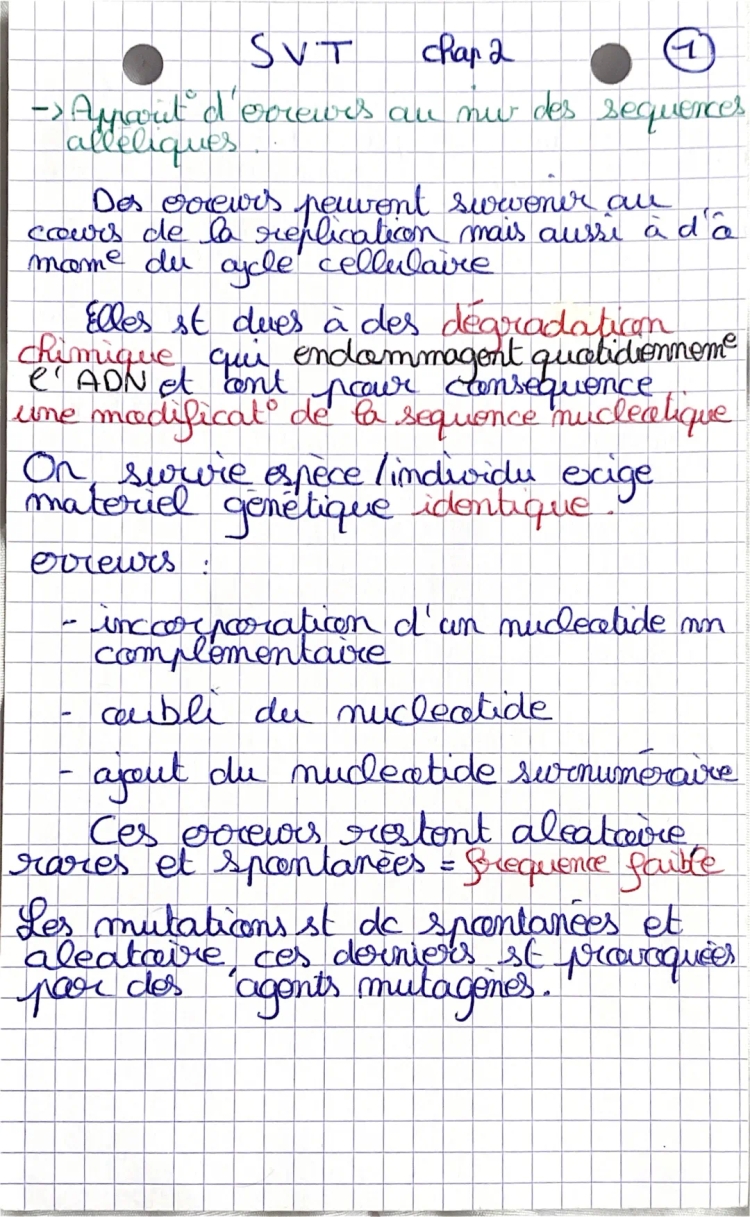 SVT chap 2 1
-> Apparit° d'erreurs au niv des sequences
alléliques.
Des erreurs peuvent survenir au
cours de la replication mais aussi à d'a
mome du cycle cellulaire
Elles st dues à des dégradation
chimique qui endommagent quotidienneme
l'ADN et ont pour consequence
une modificat° de la sequence nucleotique
On, survie espèce/individu exige
materiel génétique identique.
erreurs :
- incorporation d'un nucleotide nn
complémentaire
- oubli du nucleotide
- ajout du nucleotide surnuméraire
Ces erreurs restent aleatoire,
rares et spontanées = frequence faible
Les mutations st dc spontanées et
aleatoire, ces derniers st provoquées
par des agents mutagènes.